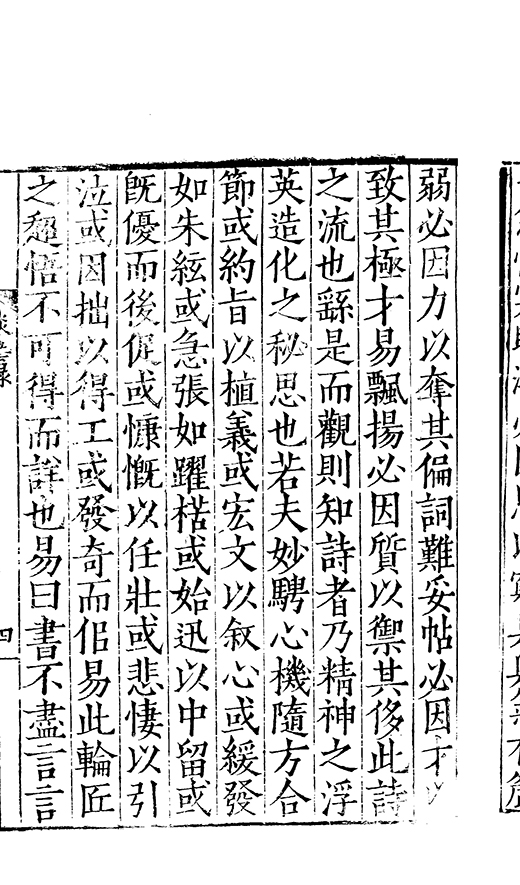 弱必因力以奪其偏詞難妥帖必因才以
致其極才易飄揚必因質以禦其侈此詩
之流也繇是而觀則知詩者乃精神之浮
英造化之秘思也若夫妙騁心機隨方合
節或約旨以植義或宏文以叙心或緩發
如朱絃或急張如躍楛或始迅以中留或
旣優而後促或慷慨以任壯或悲悽以引
泣或因拙以得工或發奇而佀易此輪匠
之超悟不可得而詳也易曰書不盡言言
四